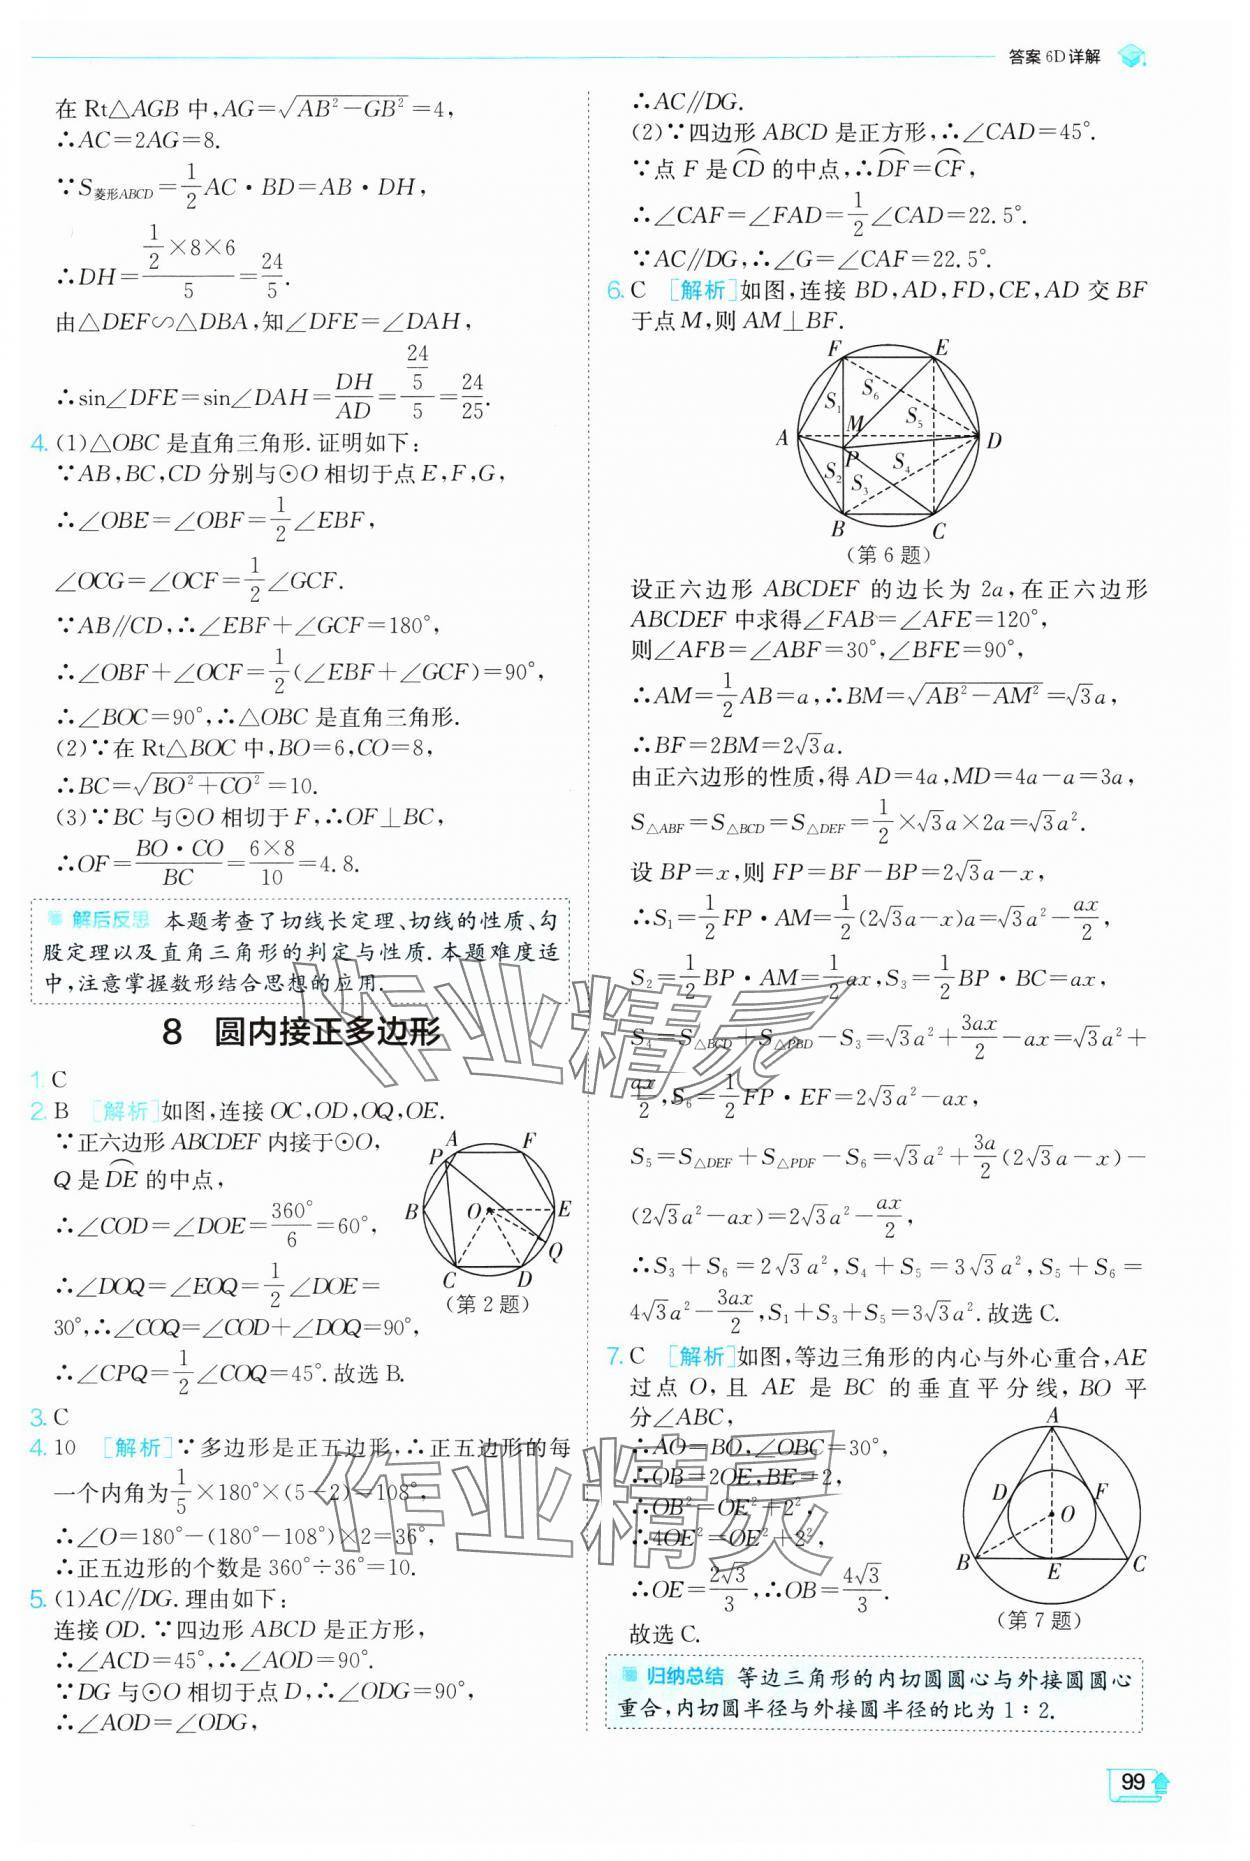 答案 6D详解
在 Rt△AGB 中,AG=√(AB²−GB²)=4,
∴AC=2AG=8.
∵S菱形ABCD=1/2AC·BD=AB·DH,
∴DH=(1/2×8×6)/5=24/5.
由△DEF∽△DBA,知∠DFE=∠DAH,
∴sin∠DFE=sin∠DAH=DH/AD=(24/5)/5=24/25.
4. (1)△OBC 是直角三角形.证明如下:
∵AB,BC,CD 分别与⊙O 相切于点E,F,G,
∴∠OBE=∠OBF=1/2∠EBF,
∠OCG=∠OCF=1/2∠GCF.
∵AB∥CD,∴∠EBF+∠GCF=180°,
∴∠OBF+∠OCF=1/2(∠EBF+∠GCF)=90°,
∴∠BOC=90°,∴△OBC 是直角三角形.
(2)∵在 Rt△BOC 中,BO=6,CO=8,
∴BC=√(BO²+CO²)=10.
(3)∵BC 与⊙O 相切于 F,∴OF⊥BC,
∴OF=BO·CO/BC=6×8/10=4.8.
解后反思 本题考查了切线长定理、切线的性质、勾
股定理以及直角三角形的判定与性质.本题难度适
中,注意掌握数形结合思想的应用.
8 圆内接正多边形
1. C
2. B [解析]如图,连接 OC,OD,OQ,OE.
∵正六边形 ABCDEF 内接于⊙O,
Q 是DE⌒的中点,
∴∠COD=∠DOE=360°/6=60°,
∴∠DOQ=∠EOQ=1/2∠DOE=
30°,∴∠COQ=∠COD+∠DOQ=90°,
∴∠CPQ=1/2∠COQ=45°.故选 B.
A F
P
B O E
Q
C D
(第 2 题)
3. C
4. 10 [解析]∵多边形是正五边形,∴正五边形的每
一个内角为1/5×180°×(5−2)=108°,
∴∠O=180°−(180°−108°)×2=36°,
∴正五边形的个数是 360°÷36°=10.
5. (1)AC∥DG.理由如下:
连接 OD.∵四边形 ABCD 是正方形,
∴∠ACD=45°,∴∠AOD=90°.
∵DG 与⊙O 相切于点 D,∴∠ODG=90°,
∴∠AOD=∠ODG,
∴AC∥DG.
(2)∵四边形 ABCD 是正方形,∴∠CAD=45°.
∵点 F 是CD⌒的中点,∴DF⌒=CF⌒,
∴∠CAF=∠FAD=1/2∠CAD=22.5°.
∵AC∥DG,∴∠G=∠CAF=22.5°.
6. C [解析]如图,连接 BD,AD,FD,CE,AD 交 BF
于点M,则 AM⊥BF.
F E
S₁ S₆
M S₅
A D
P
S₂ S₃ S₄
B C
(第 6 题)
设正六边形 ABCDEF 的边长为 2a,在正六边形
ABCDEF 中求得∠FAB=∠AFE=120°,
则∠AFB=∠ABF=30°,∠BFE=90°,
∴AM=1/2AB=a,∴BM=√(AB²−AM²)=√3a,
∴BF=2BM=2√3a.
由正六边形的性质,得 AD=4a,MD=4a−a=3a,
S△ABF=S△BCD=S△DEF=1/2×√3a×2a=√3a².
设 BP=x,则 FP=BF−BP=2√3a−x,
∴S₁=1/2FP·AM=1/2(2√3a−x)a=√3a²−ax/2,
S₂=1/2BP·AM=1/2ax,S₃=1/2BP·BC=ax,
S₄=S△BCD+S△PBD−S₃=√3a²+3ax/2−ax=√3a²+
ax/2,S₆=1/2FP·EF=2√3a²−ax,
S₅=S△DEF+S△PDF−S₆=√3a²+3a/2(2√3a−x)−
(2√3a²−ax)=2√3a²−ax/2,
∴S₃+S₆=2√3a²,S₄+S₅=3√3a²,S₅+S₆=
4√3a²−3ax/2,S₁+S₃+S₅=3√3a².故选 C.
7. C [解析]如图,等边三角形的内心与外心重合,AE
过点 O,且 AE 是 BC 的垂直平分线,BO 平
分∠ABC,
∴AO=BO,∠OBC=30°,
∴OB=2OE,BE=2,
∴OB²=OE²+2²,
∴4OE²=OE²+2²,
∴OE=2√3/3,∴OB=4√3/3.
故选C.
A
D F
O
B E C
(第 7 题)
归纳总结 等边三角形的内切圆圆心与外接圆圆心
重合,内切圆半径与外接圆半径的比为 1∶2.
99
作业精灵
作业精灵